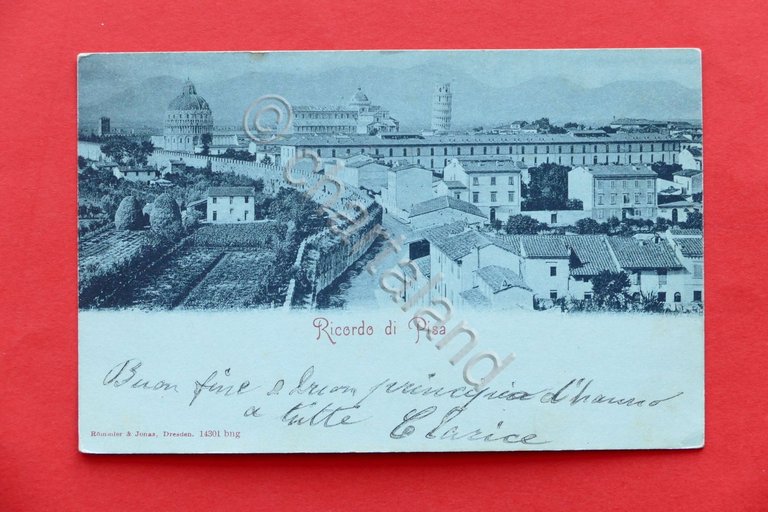 Ricordo di Pisa
Buon fine e buon principio d'hanno
a tutte Clarice
Römmler & Jonas, Dresden. 14301 bng
© chartaland